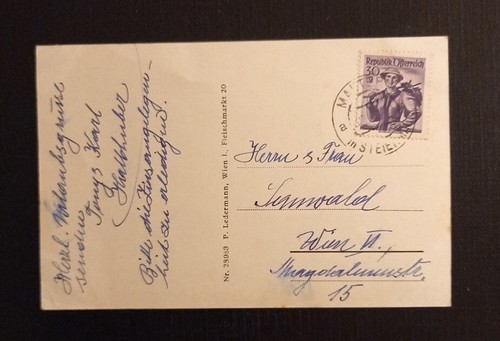 Herzl. Urlaubsgrüsse
senden
Karl
Bitte die Zinsangelegen-
heit zu erledigen!
Nr. 28063 P. Ledermann, Wien I., Fleischmarkt 20
Republik Österreich
30
STEIER
Herrn u Frau
Wien VI.,
Magdalenenstr.
15